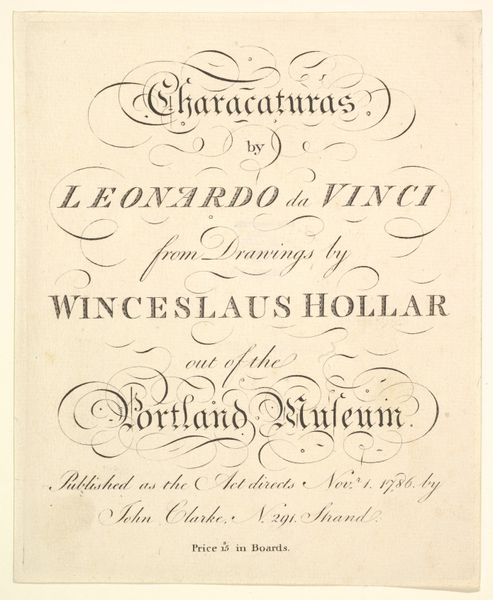 Characaturas
by
LEONARDO da VINCI
from Drawings by
WINCESLAUS HOLLAR
out of the
Portland Muſeum.
Published as the Act directs Nov.r 1. 1786. by
John Clarke, N. 291. Strand.
Price 15s in Boards.